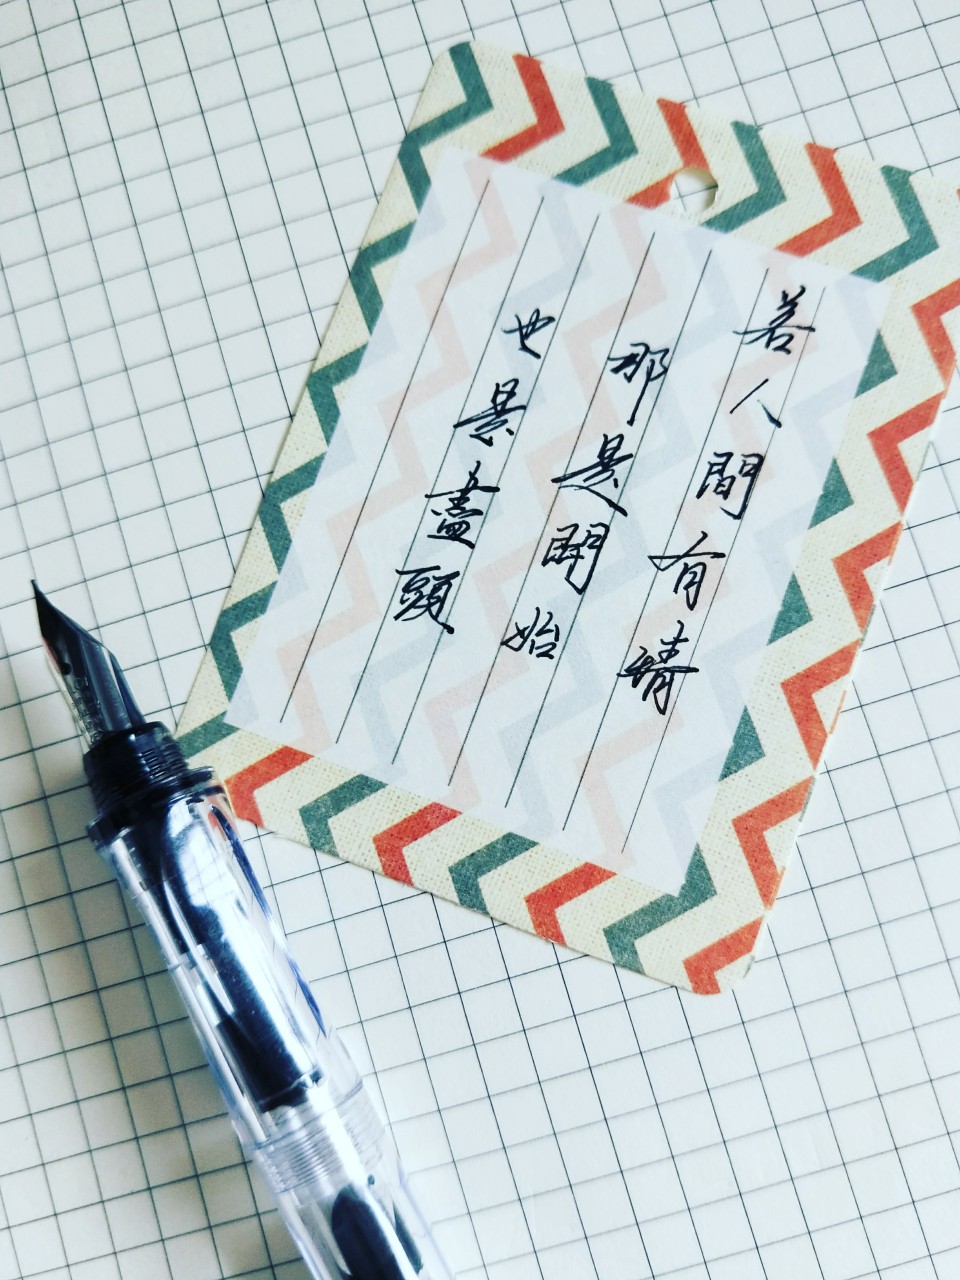 若人間有情
那是開始
也是盡頭